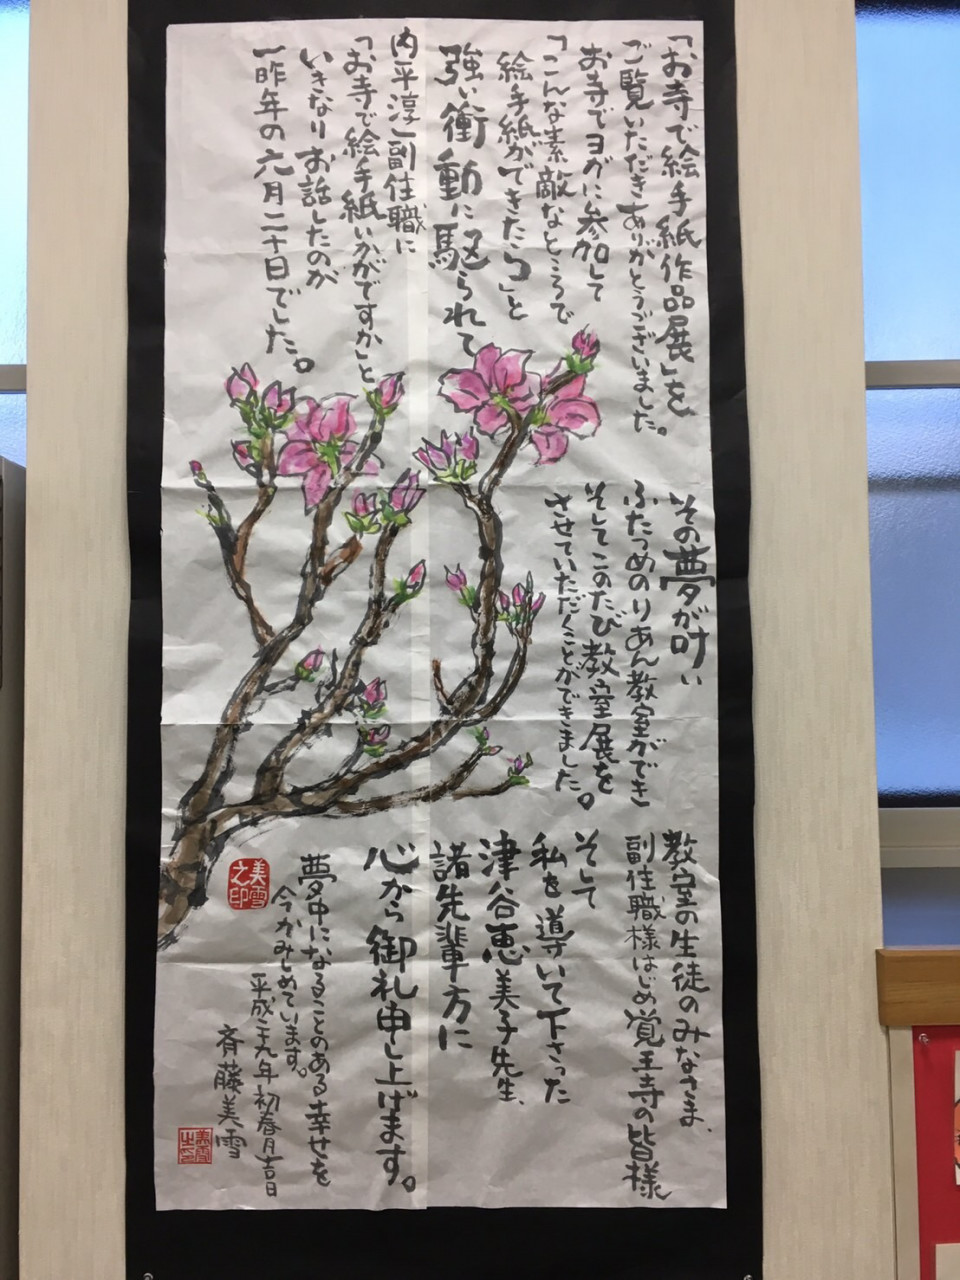 「お寺で絵手紙作品展」を
ご覧いただきありがとうございました。
お寺でヨガに参加して
「こんな素敵なところで
絵手紙ができたら」と
強い衝動に駆られて
内平淳一副住職に
「お寺で絵手紙いかがですか」と
いきなりお話したのが
一昨年の六月二十日でした。
その夢が叶い
ふたつめのりあん教室ができ
そしてこのたび教室展を
させていただくことができました。
教室の生徒のみなさま、
副住職様はじめ覚王寺の皆様
そして
私を導いて下さった
津谷恵美子先生、
諸先輩方に
心から御礼申し上げます。
夢中になることのある幸せを
今かみしめています。
平成二十九年初春月吉日
斉藤美雪
美雪之印